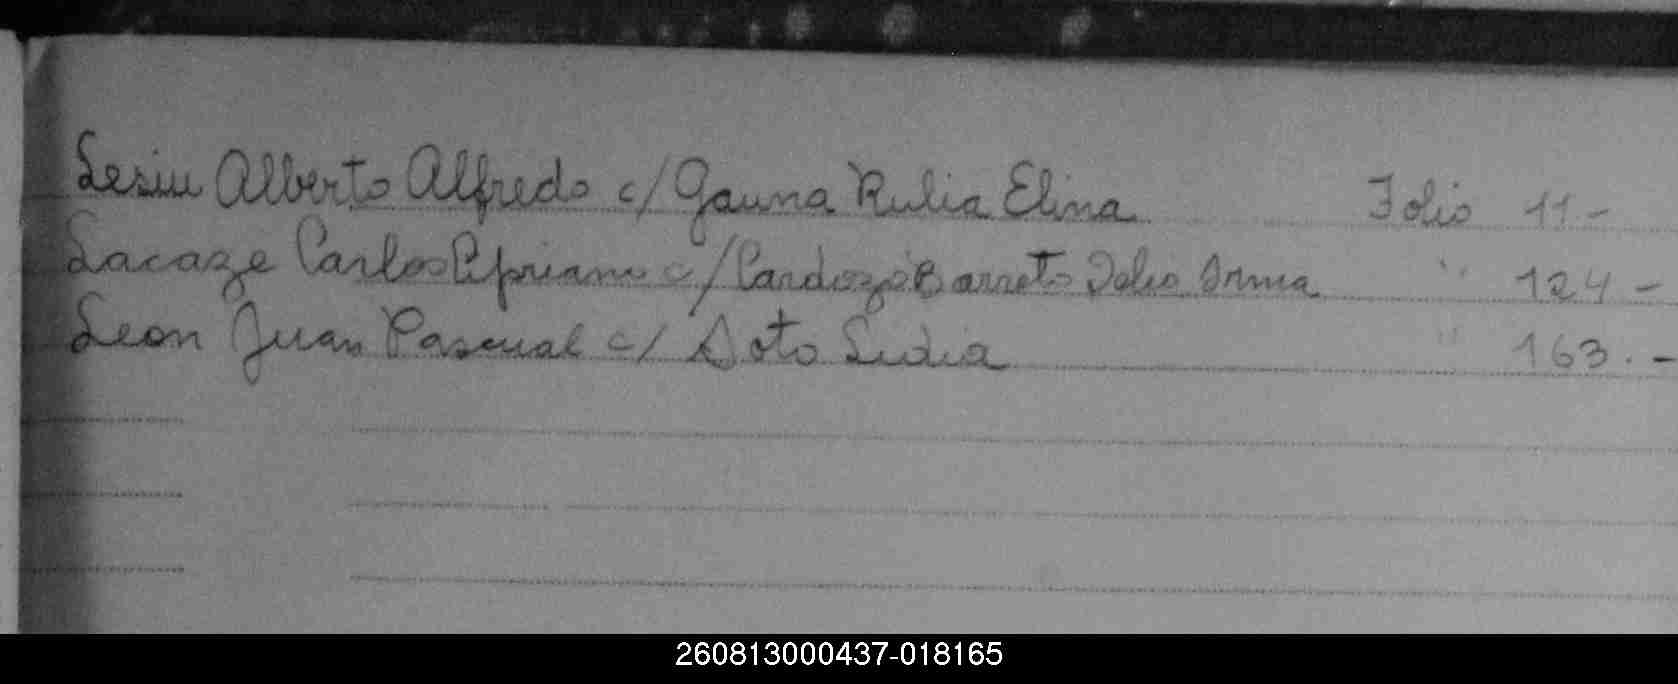 Lesiu Alberto Alfredo c/ Gauna Rulia Elina Folio 11 -
Lacaze Carlos Cipriano c/ Cardozo Barreto Irma " 124 -
Leon Juan Pascual c/ Soto Lidia " 163. -
260813000437-018165